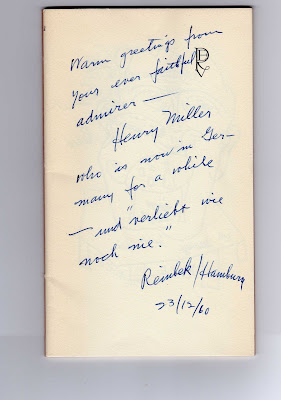 Warm greetings from
your ever faithful
admirer —
Henry Miller
who is now in Ger-
many for a while
— und "verliebt wie
noch nie."
Reinbek/Hamburg
23/12/60